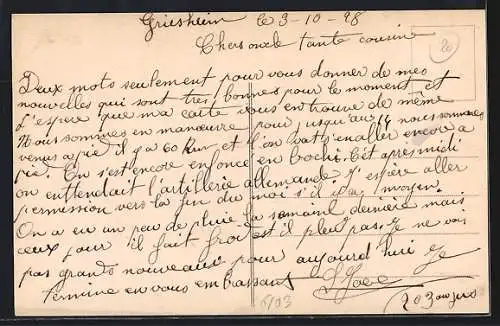 Griesheim le 3-10-28
Chers oncle tante cousine
Deux mots seulement pour vous donner de mes
nouvelles qui sont très bonnes pour le moment et
j'espère que ma carte vous en trouve de même
Nous sommes en manœuvre pour jusqu'au 14 nous sommes
venus a pied il y a 60 km et l'on va s'en aller encore a
pié. On s'est encore enfoncé en bochi. Cet après midi
on entendait l'artillerie allemande J'espère aller
permission vers la fin du moi s'il y a moyen.
On a eu un peu de pluie la semaine dernière mais
ceux jour il fait froid et il pleu pas. Je ne vois
pas grands nouveaux pour aujourd'hui Je
termine en vous embrassant
203 aujus
20